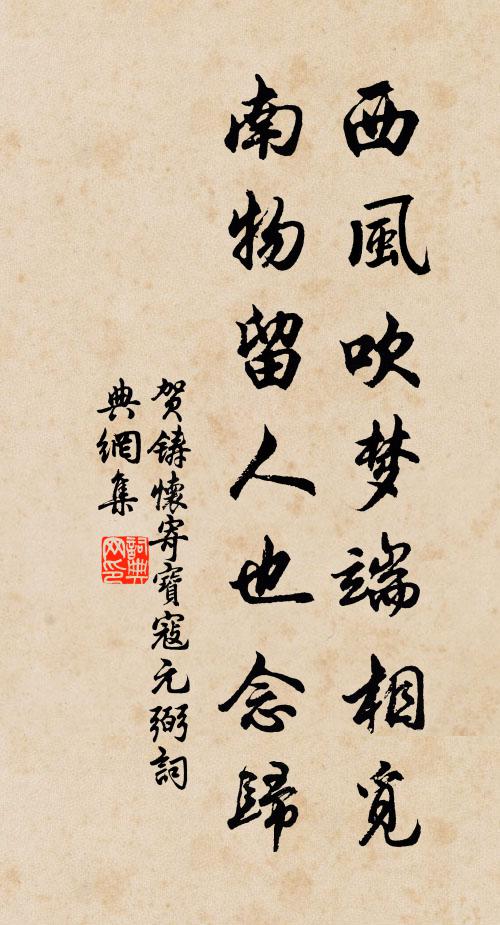 西風吹梦端相覓
南物留人也念歸
賀鑄懷寄寶寇元弼詞
典網集
詞典网印